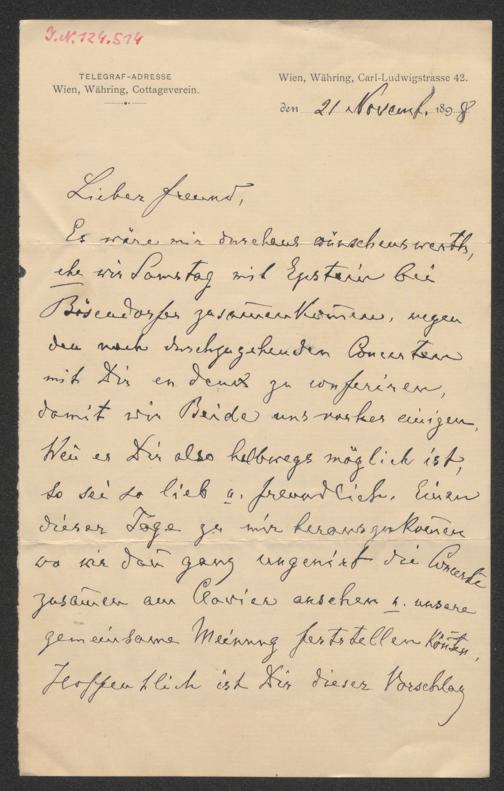 I.N. 124.514
TELEGRAF-ADRESSE
Wien, Währing, Cottageverein.
Wien, Währing, Carl-Ludwigstrasse 42.
den 21 Novemb. 1898
Lieber Freund,
Es wäre mir durchaus wünschenswerth,
ehe wir Samstag mit Epstein bei
Bösendorfer zusam̅enkom̅en, wegen
den noch durchzugehenden Concerten
mit Dir en deux zu conferiren,
damit wir Beide uns vorher einigen.
Wen̅ es Dir also halbwegs möglich ist,
so sei so lieb u. freundlich, Einen
dieser Tage zu mir herauszukom̅en
wo wir dan̅ ganz ungenirt die Concerte
zusam̅en am Clavier ansehen u. unsere
gemeinsame Meinung feststellen kön̅ten.
Hoffentlich ist Dir dieser Vorschlag